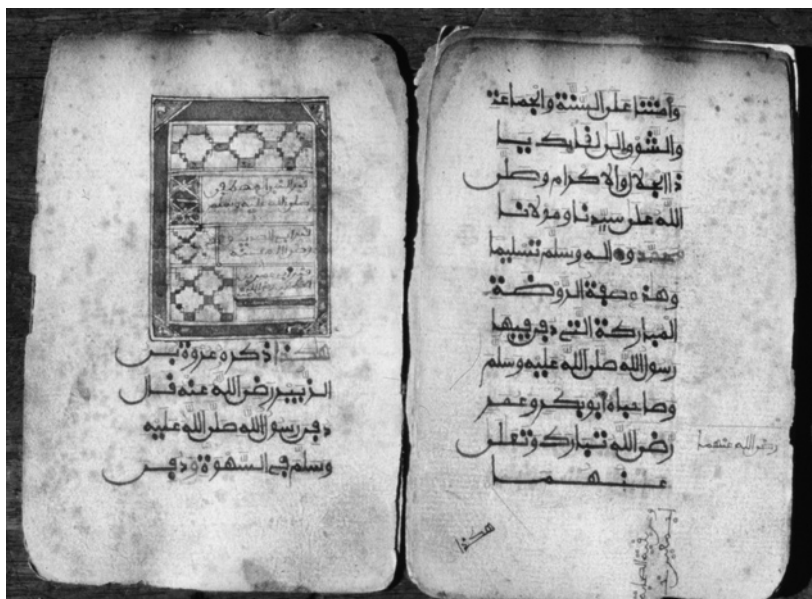 وأمتنا على السنة والجماعة
والشوق إلى لقائك يا
ذا الجلال والإكرام وصلى
الله على سيدنا ومولانا
محمد وءاله وسلم تسليما
وهذه صفة الروضة
المباركة التي دفن فيها
رسول الله صلى الله عليه وسلم
وصاحباه أبو بكر وعمر
رضي الله تبارك وتعلى
عنهما
رضي الله عنهما
هكذا
صلى الله عليه وسلم
هكذا ذكره عروة بن
الزبير رضي الله عنه قال
دفن رسول الله صلى الله عليه
وسلم في السهوة ودفن